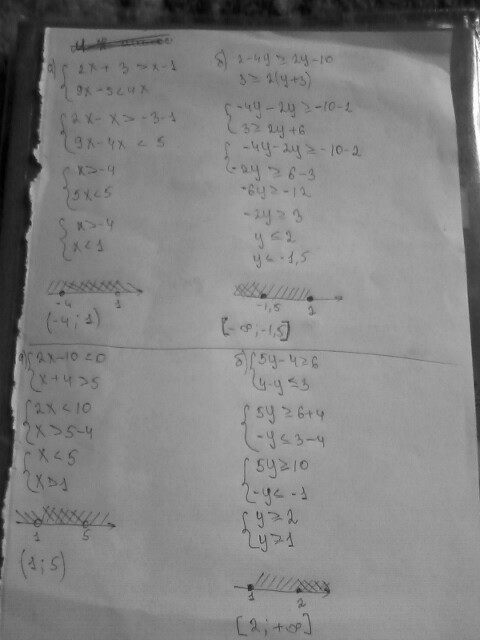 а) { 2x + 3 > x - 1
9x - 5 < 4x
{ 2x - x > -3 - 1
9x - 4x < 5
{ x > -4
5x < 5
{ x > -4
x < 1
-4 1
(-4; 1)
б) 2 - 4y ≥ 2y - 10
3 ≥ 2(y+3)
{ -4y - 2y ≥ -10 - 2
3 ≥ 2y + 6
{ -4y - 2y ≥ -10 - 2
-2y ≥ 6 - 3
-6y ≥ -12
-2y ≥ 3
y ≤ 2
y ≤ -1,5
-1,5 2
[-∞; -1,5]
а) { 2x - 10 < 0
x + 4 > 5
{ 2x < 10
x > 5 - 4
{ x < 5
x > 1
1 5
(1; 5)
б) { 5y - 4 ≥ 6
4 - y ≤ 3
{ 5y ≥ 6 + 4
-y ≤ 3 - 4
{ 5y ≥ 10
-y ≤ -1
{ y ≥ 2
y ≥ 1
1 2
[2; +∞]